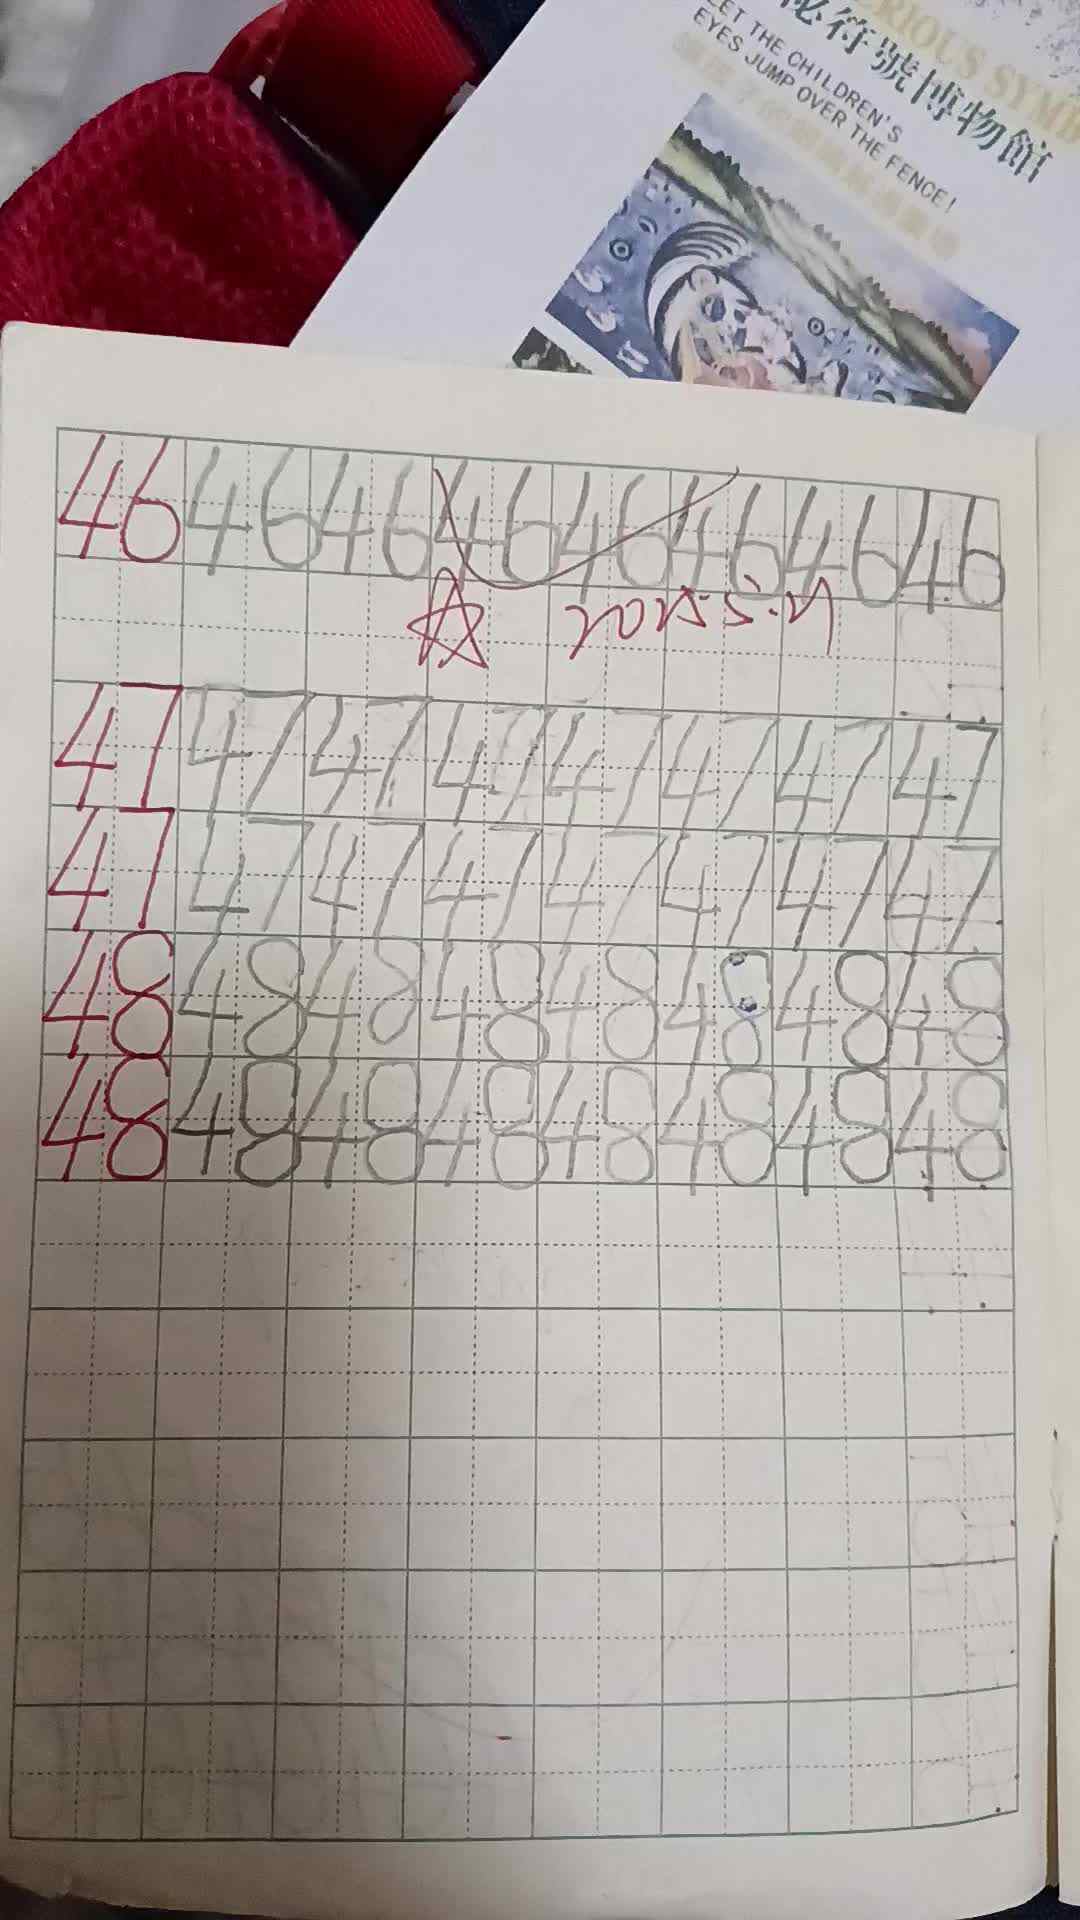 LET THE CHILDREN'S
EYES JUMP OVER THE FENCE!
符號博物館
46 46 46 46 46 46 46 46
47 47 47 47 47 47 47 47
47 47 47 47 47 47 47 47
48 48 48 48 48 48 48 48
48 48 48 48 48 48 48 48